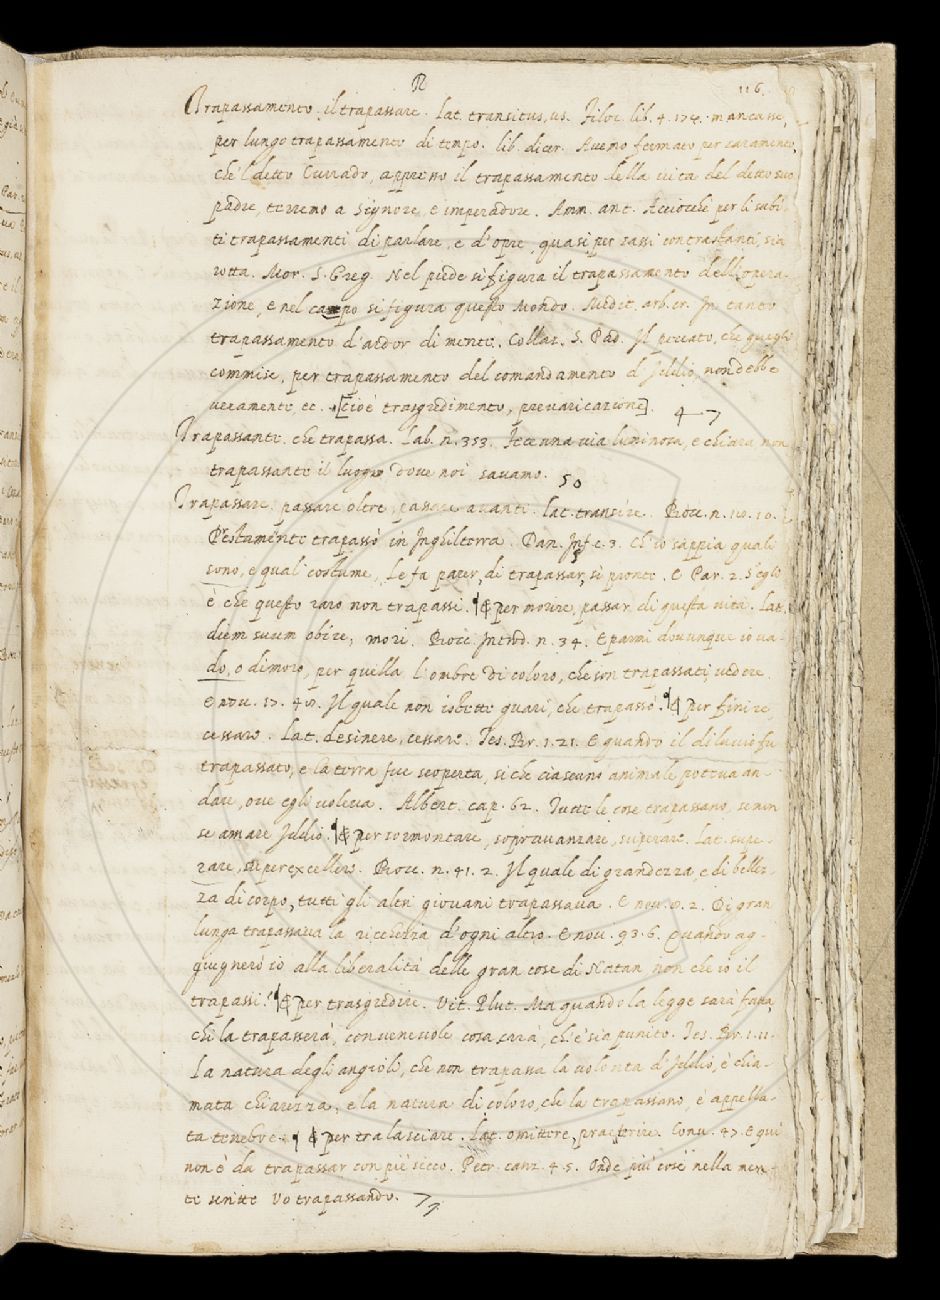 R
116.
Trapassamento. il trapassare. Lat. transitus, us. Filoc. lib. 4. 174. mancasse,
per lungo trapassamento di tempo. lib. dicer. Avemo fermato per saramento,
che'l detto Currado, appresso il trapassamento della vita del detto suo
padre, terremo a Signore, e imperadore. Amm. ant. Acciocchè per li subi-
ti trapassamenti di parlare, e d'opre, quasi per sassi contrastanti, sia
rotta. Mor. S. Greg. Nel piede si figura il trapassamento dell'opera-
zione, e nel campo si figura questo Mondo. Medit. arb. cr. In tanto
trapassamento d'ardor di mente. Collaz. S. Pad. Il peccato, che quegli
commise, per trapassamento del comandamento d'Iddio, non debbe
veramente, ec. [cioè trasgredimento, prevaricazione].
4 7
Trapassante. che trapassa. Lab. n. 353. Fece una via luminosa, e chiara non
trapassante il luogo dove noi savamo.
50
Trapassare. passare oltre, passare avanti. lat. transire. Bocc. n. 10. 10.
Prestamente trapassò in Inghilterra. Dan. Inf. c. 3. Ch'io sappia quali
sono, e qual costume, Le fa parer, di trapassar, sì pronte. E Par. 2. S'egli
è che questo raro non trapassi. ¶ E per morire, passar di questa vita. Lat.
diem suum obire, mori. Bocc. Introd. n. 34. E parmi dovunque io va-
do, o dimoro, per quella l'ombre di coloro, che son trapassati, vedere.
E nov. 17. 40. Il quale non istette guari, che trapassò. ¶ E per finire
cessare. Lat. desinere, cessare. Tes. Br. 1. 21. E quando il diluvio fu
trapassato, e la terra fue scoperta, sì che ciascuno animale poteva an-
dare, ove egli voleva. Albert. cap. 62. Tutte le cose trapassano, se non
se amare Iddio. ¶ E per sormontare, sopravanzare, superare. Lat. supe-
rare, superexcellere. Bocc. n. 41. 2. Il quale di grandezza, e di bellez-
za di corpo, tutti gli altri giovani trapassava. E nov. 8. 2. Di gran
lunga trapassava la ricchezza d'ogni altro. E nov. 93. 6. Quando ag-
giugnerò io alla liberalità delle gran cose di Natan, non che io il
trapassi? ¶ E per trasgredire. Vit. Plut. Ma quando la legge sarà fatta,
chi la trapasserà, convenevole cosa sarà, ch'e' sia punito. Tes. Br. 1. 11.
La natura degli angioli, che non trapassa la volontà d'Iddio, è chia-
mata chiarezza, e la natura di coloro, che la trapassano, è appella-
ta tenebre. ¶ E per tralasciare. Lat. omittere, praeterire. Conv. 47. E qui
non è da trapassar con piè secco. Petr. canz. 4. 5. Onde più cose nella men-
te scritte Vo trapassando.
77